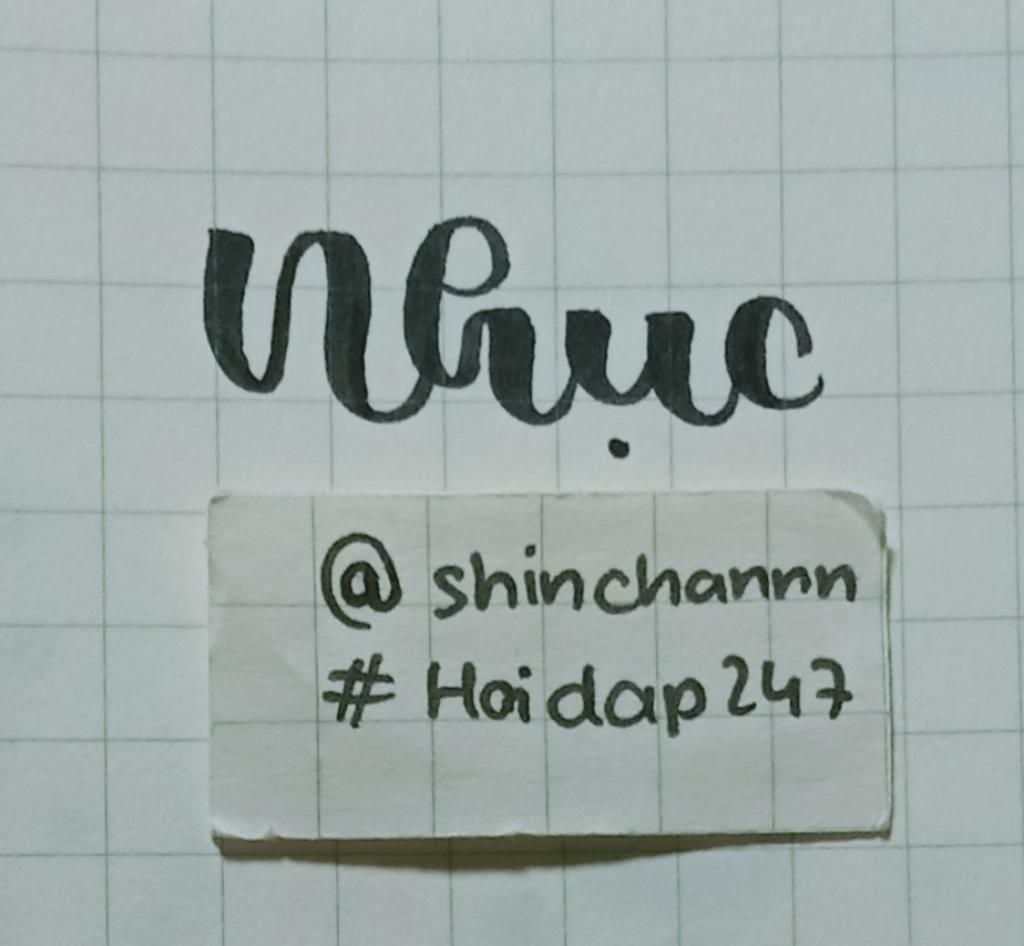 Nhục
@shinchannn
#Hoidap247